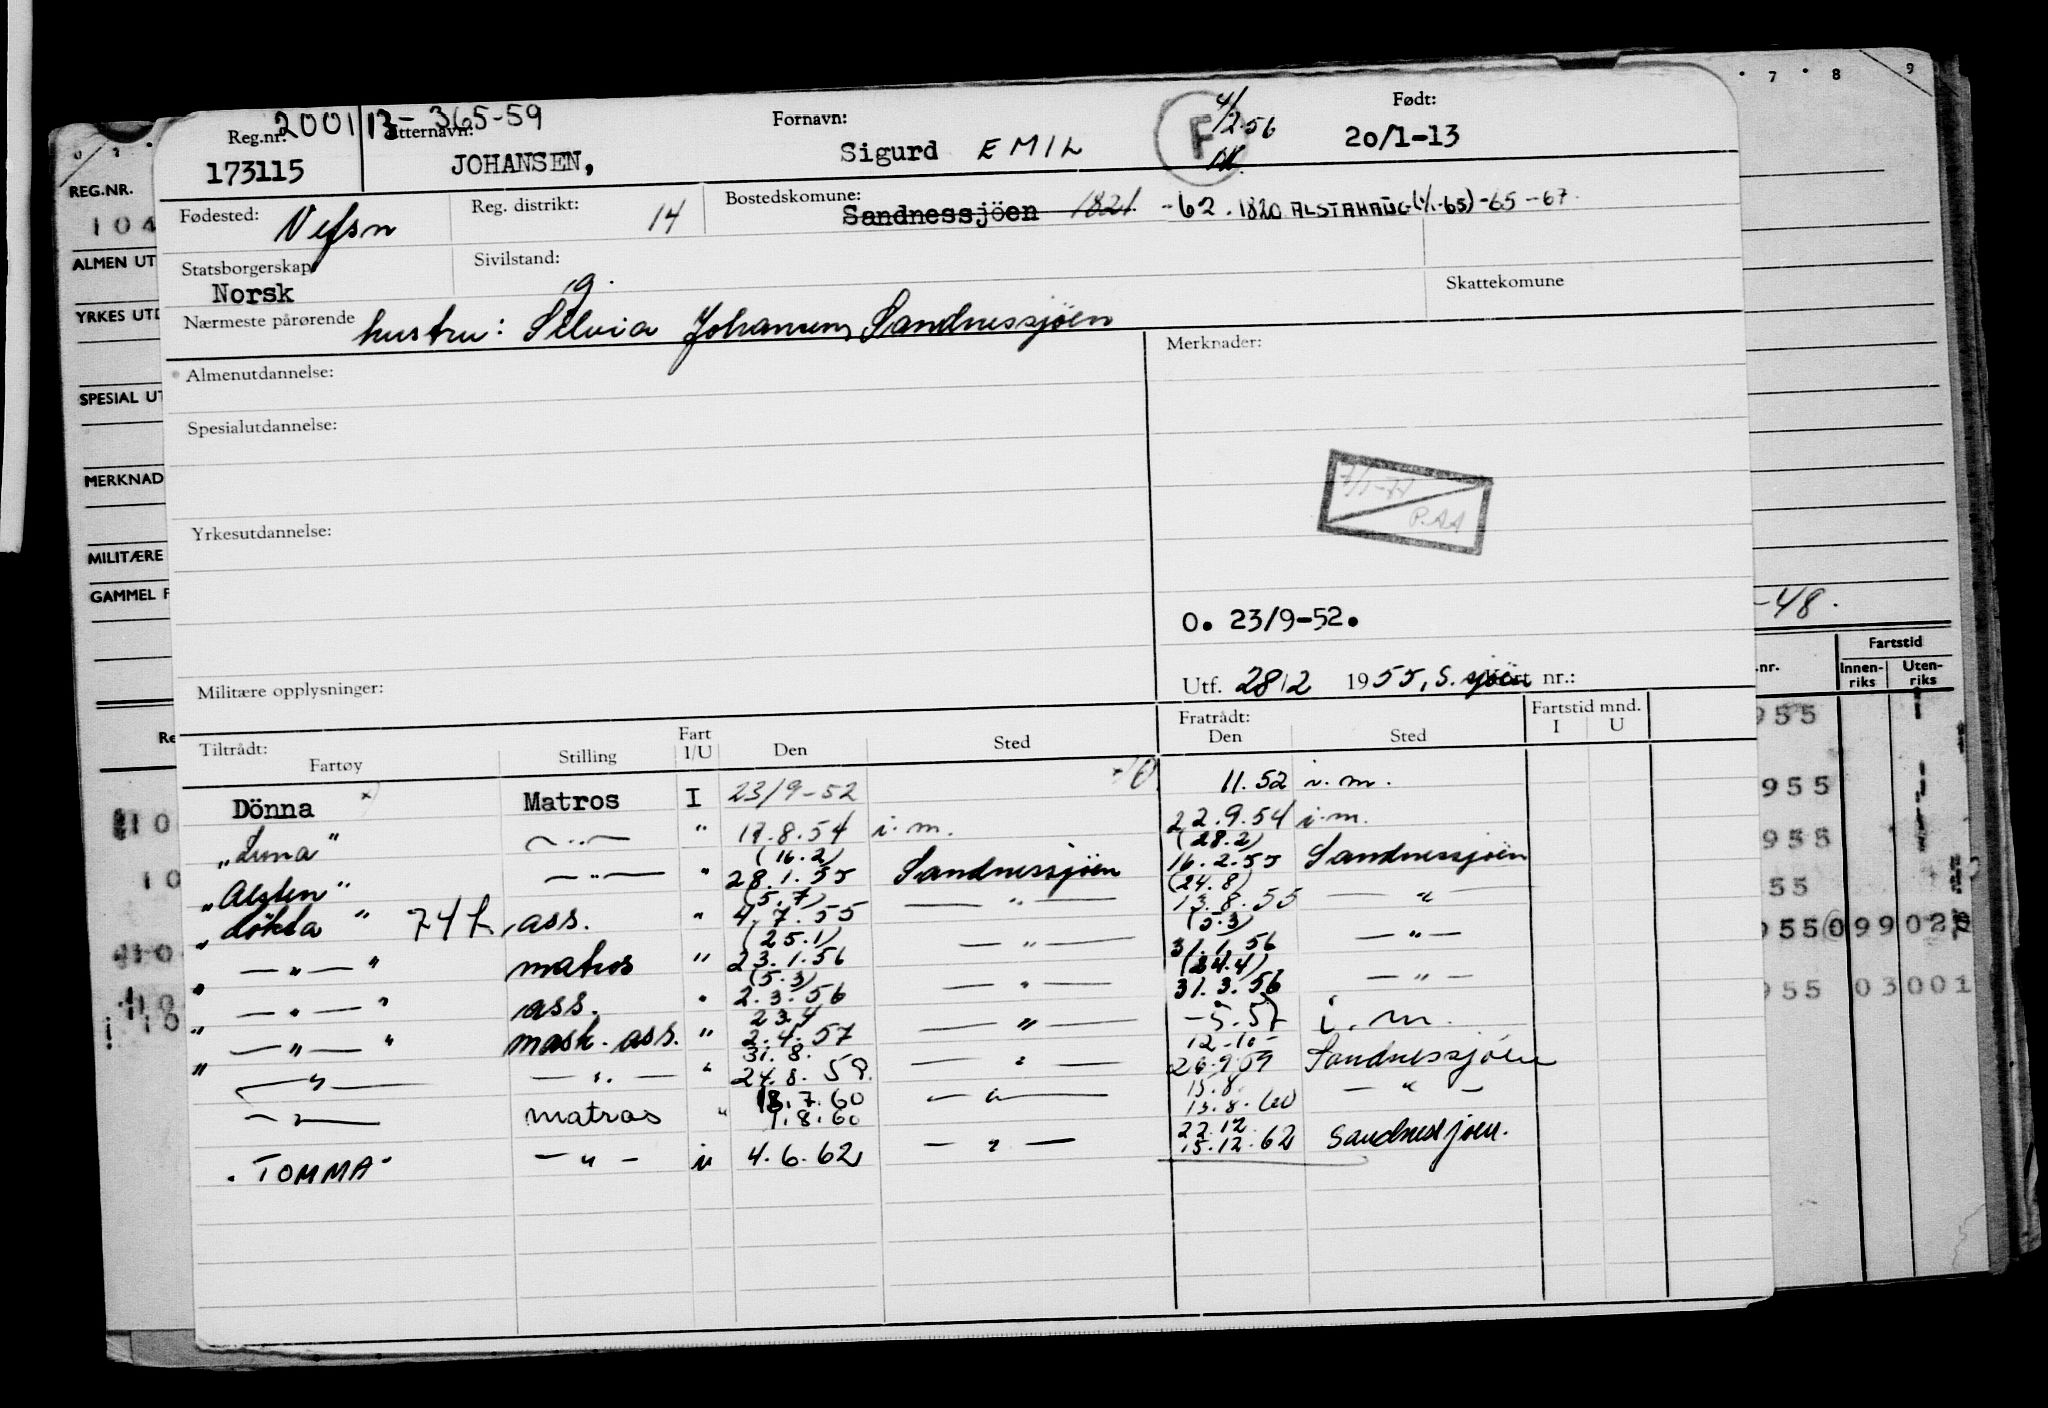 200113-365-59
Reg.nr. Etternavn: Fornavn: F 4/2.56 Født:
173115 JOHANSEN, Sigurd EMIL 20/1-13
Fødested: Vefsn Reg. distrikt: 14 Bostedskomune: Sandnessjöen 1821 -62. 1820 ALSTAHAUG (1/1-65) -65-67.
Statsborgerskap Norsk Sivilstand: g. Skattekomune
Nærmeste pårørende hustru: Silvia Johansen, Sandnessjöen
Almenutdannelse: Merknader:
Spesialutdannelse:
7/1-77
P.AA
Yrkesutdannelse:
O. 23/9-52.
Militære opplysninger: Utf. 28/2 1955, S. sjöen nr.:
Tiltrådt: Fratrådt: Fartstid mnd.
Fartøy Stilling Fart I/U Den Sted Den Sted I U
Dönna x) Matros I 23/9-52 11.52 i.m.
"Luna" —"— " 17.8.54 i.m. 22.9.54 i.m.
"Alsten" —"— " (16.2) 28.1.55 Sandnessjöen (28.2) 16.2.55 Sandnessjöen
"Lökta" 74 L, ass. " (5.7) 4.7.55 —"— (24.8) 13.8.55 —"—
"—"—" matros " (25.1) 23.1.56 —"— (5.3) 31.1.56 —"—
"—"—" ass. " (5.3) 2.3.56 —"— (24.4) 31.3.56 —"—
"—"—" mask. ass. " 23.4 2.4.57 —"— -5.57 i.m.
"—"— —"— " 31.8. 24.8.59. —"— 12-10- 26.9.59 Sandnessjöen
—"— matros " 18.7.60 1.8.60 —"— 15.8. 15.8.60 —"—
"TOMMA" —"— i 4.6.62 —"— 22.12. 15.12.62 Sandnessjöen.
REG.NR.
104
ALMEN UT
YRKES UTD
SPESIAL UT
MERKNAD
MILITÆRE
GAMMEL F
7 8 9
-48.
nr. Fartstid
Innen-riks Uten-riks
955
955
955
55
955 099 02
955 03001